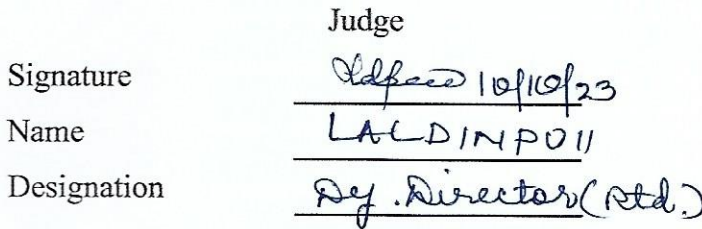 Judge
Signature 10/10/23
Name LALDINPUII
Designation Dy. Director (Rtd.)